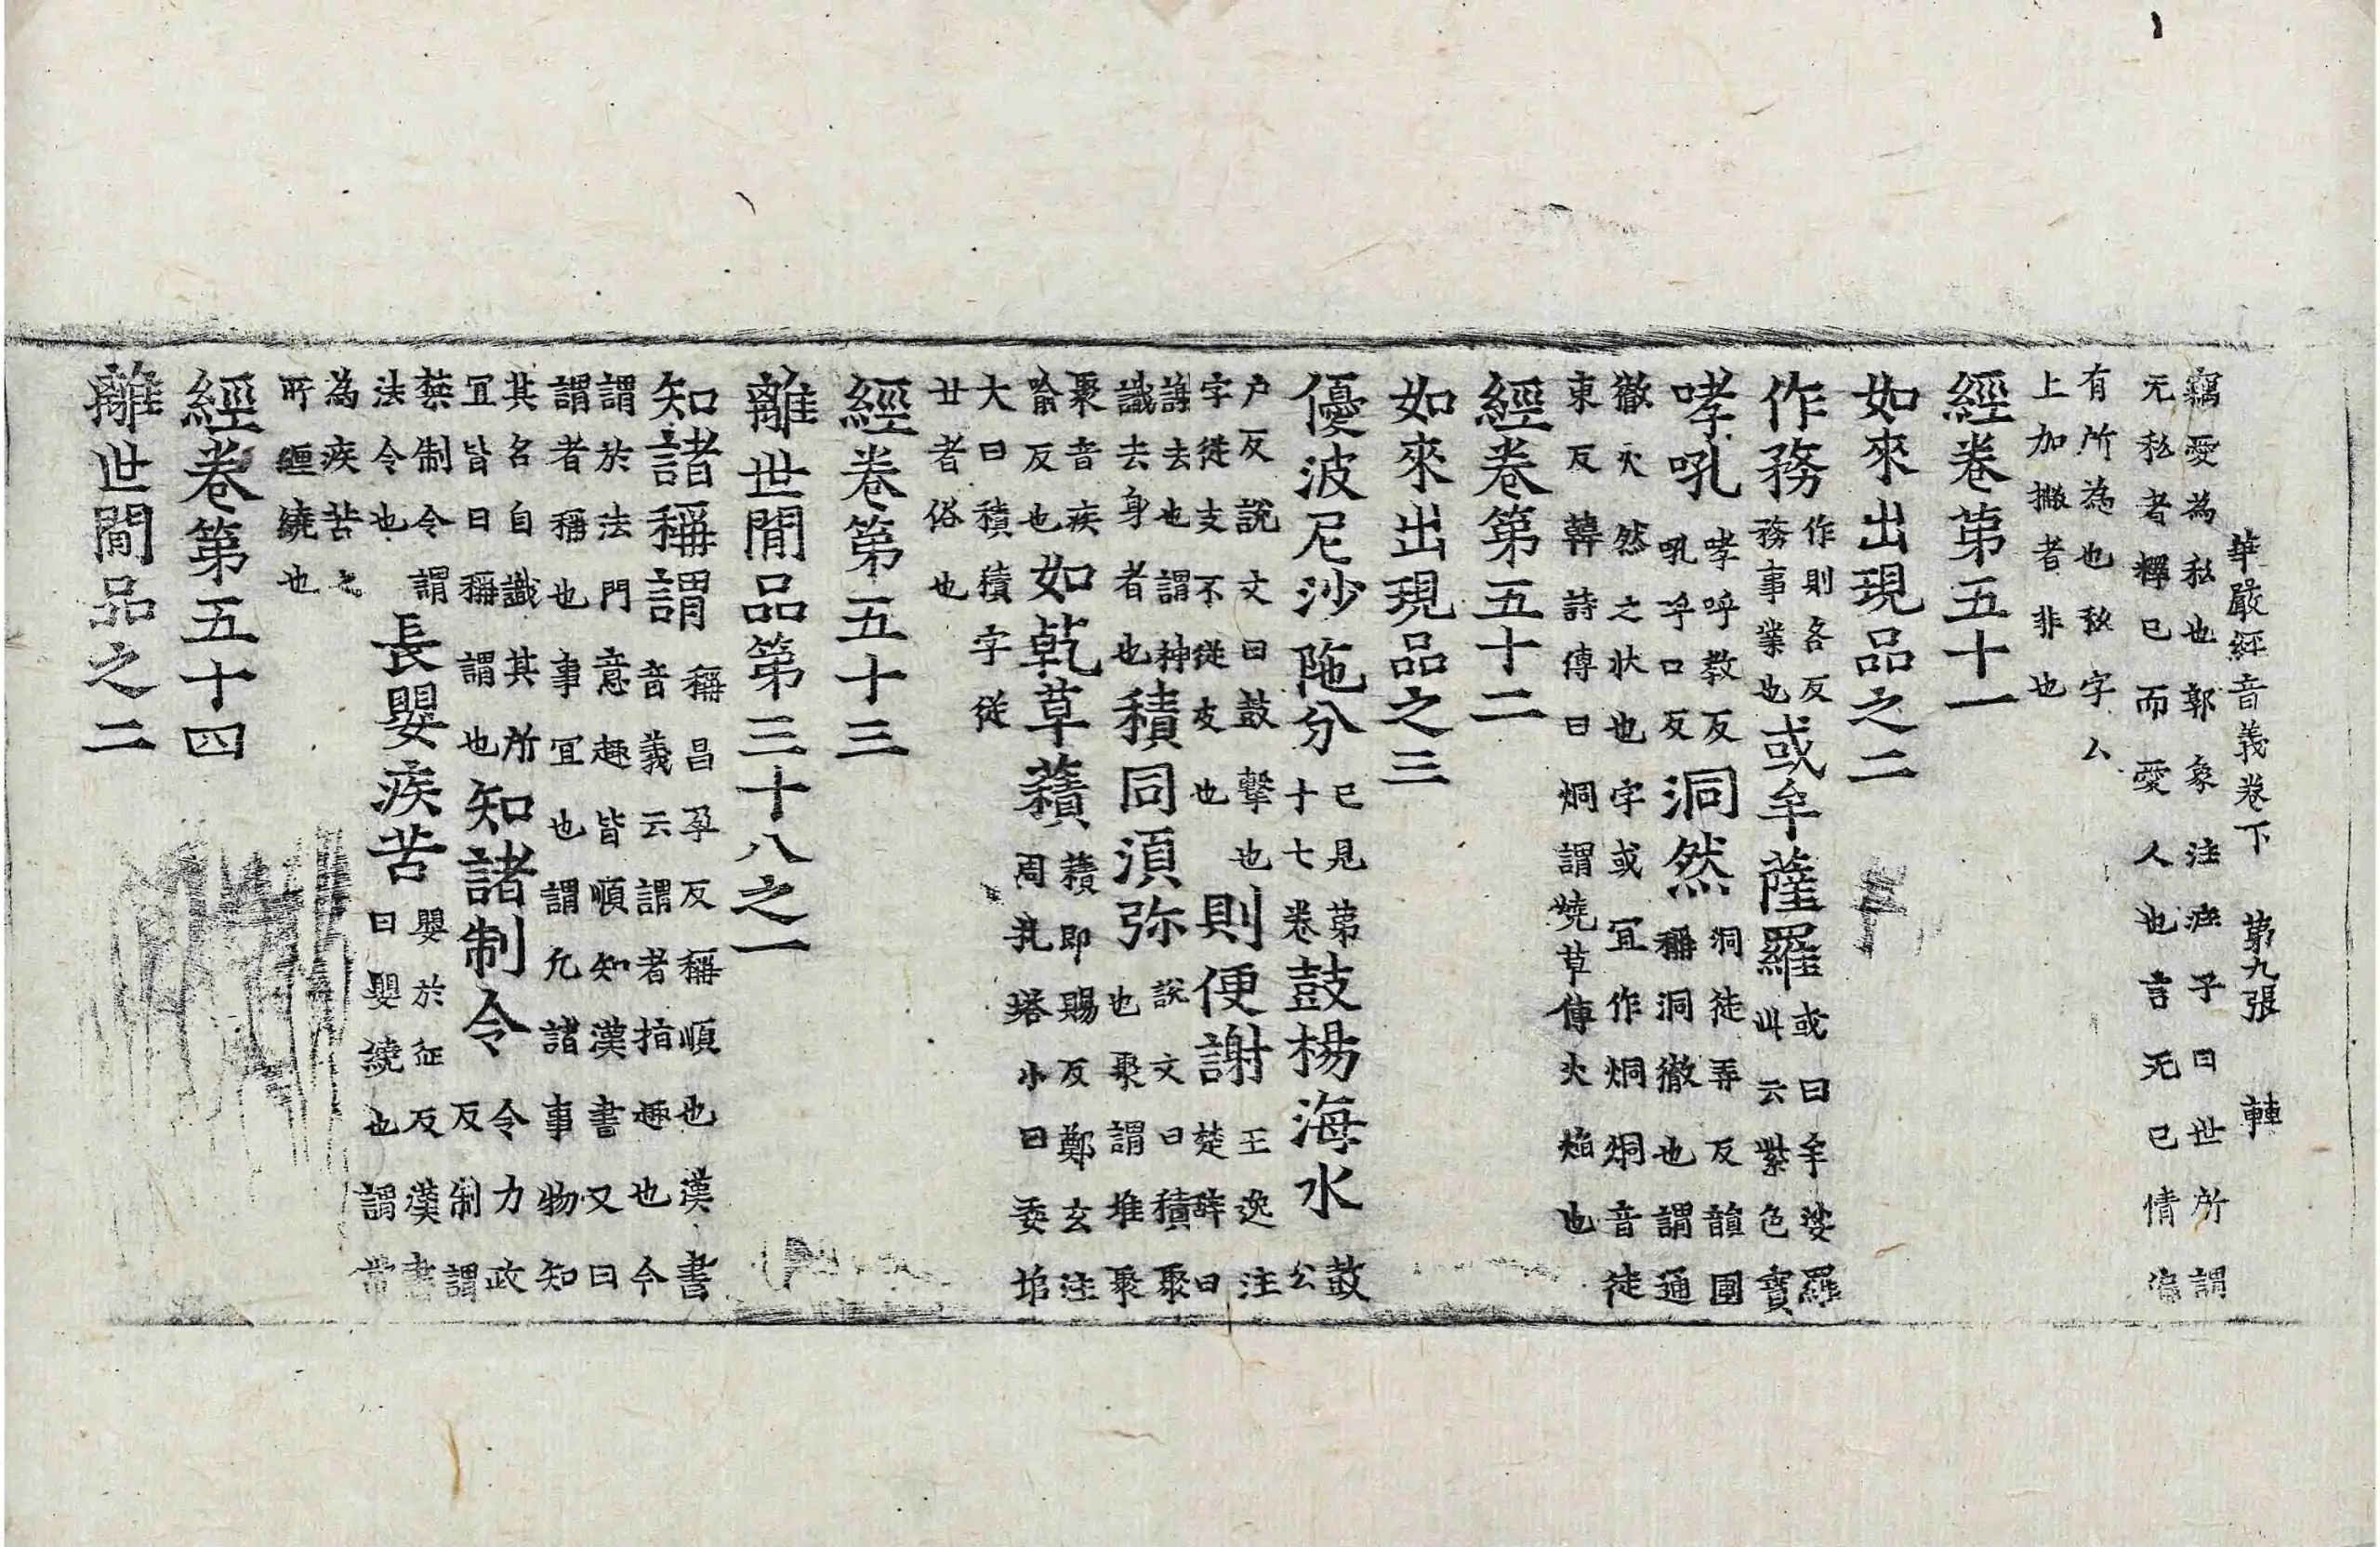 華嚴經音義卷下 第九張 轉
竊愛為私也郭象注庄子曰世所謂
无私者釋己而愛人也言无己情偏
有所為也私字厶
上加撇者非也
經卷第五十一
如來出現品之二
作務作則各反務事業也或牟薩羅或曰牟娑羅此云紫色寶
哮吼哮呼教反吼乎口反洞然洞徒弄反韻圃稱洞徹也謂通
徹火然之状也字或冝作烔烔音徒
東反韓詩傳曰烔謂燒草傳火焰也
經卷第五十二
如來出現品之三
優波尼沙陁分已見第十七卷鼓楊海水鼓公
户反說文曰鼓擊也
字徒支不從皮也則便謝王逸注楚辞曰
謝去也謂神
識去身者也積同湏弥說文曰積聚也聚謂堆聚
聚音疾
喻反也如乾草䕆䕆即賜反鄭玄注周礼塔小曰委埳
大曰積積字從
廿者俗也
經卷第五十三
離世間品第三十八之一
知諸稱謂稱昌孕反稱順也漢書音義云謂者指趣也今
謂於法門意趣皆順知漢書又曰
謂者稱也事冝也謂允諸事物知
其名自識其所
冝皆曰稱謂也知諸制令令力政反制謂
禁制令謂
法令也長嬰疾苦嬰於征反漢書曰嬰繞也謂常
為疾苦之
所纒繞也
經卷第五十四
離世間品之二